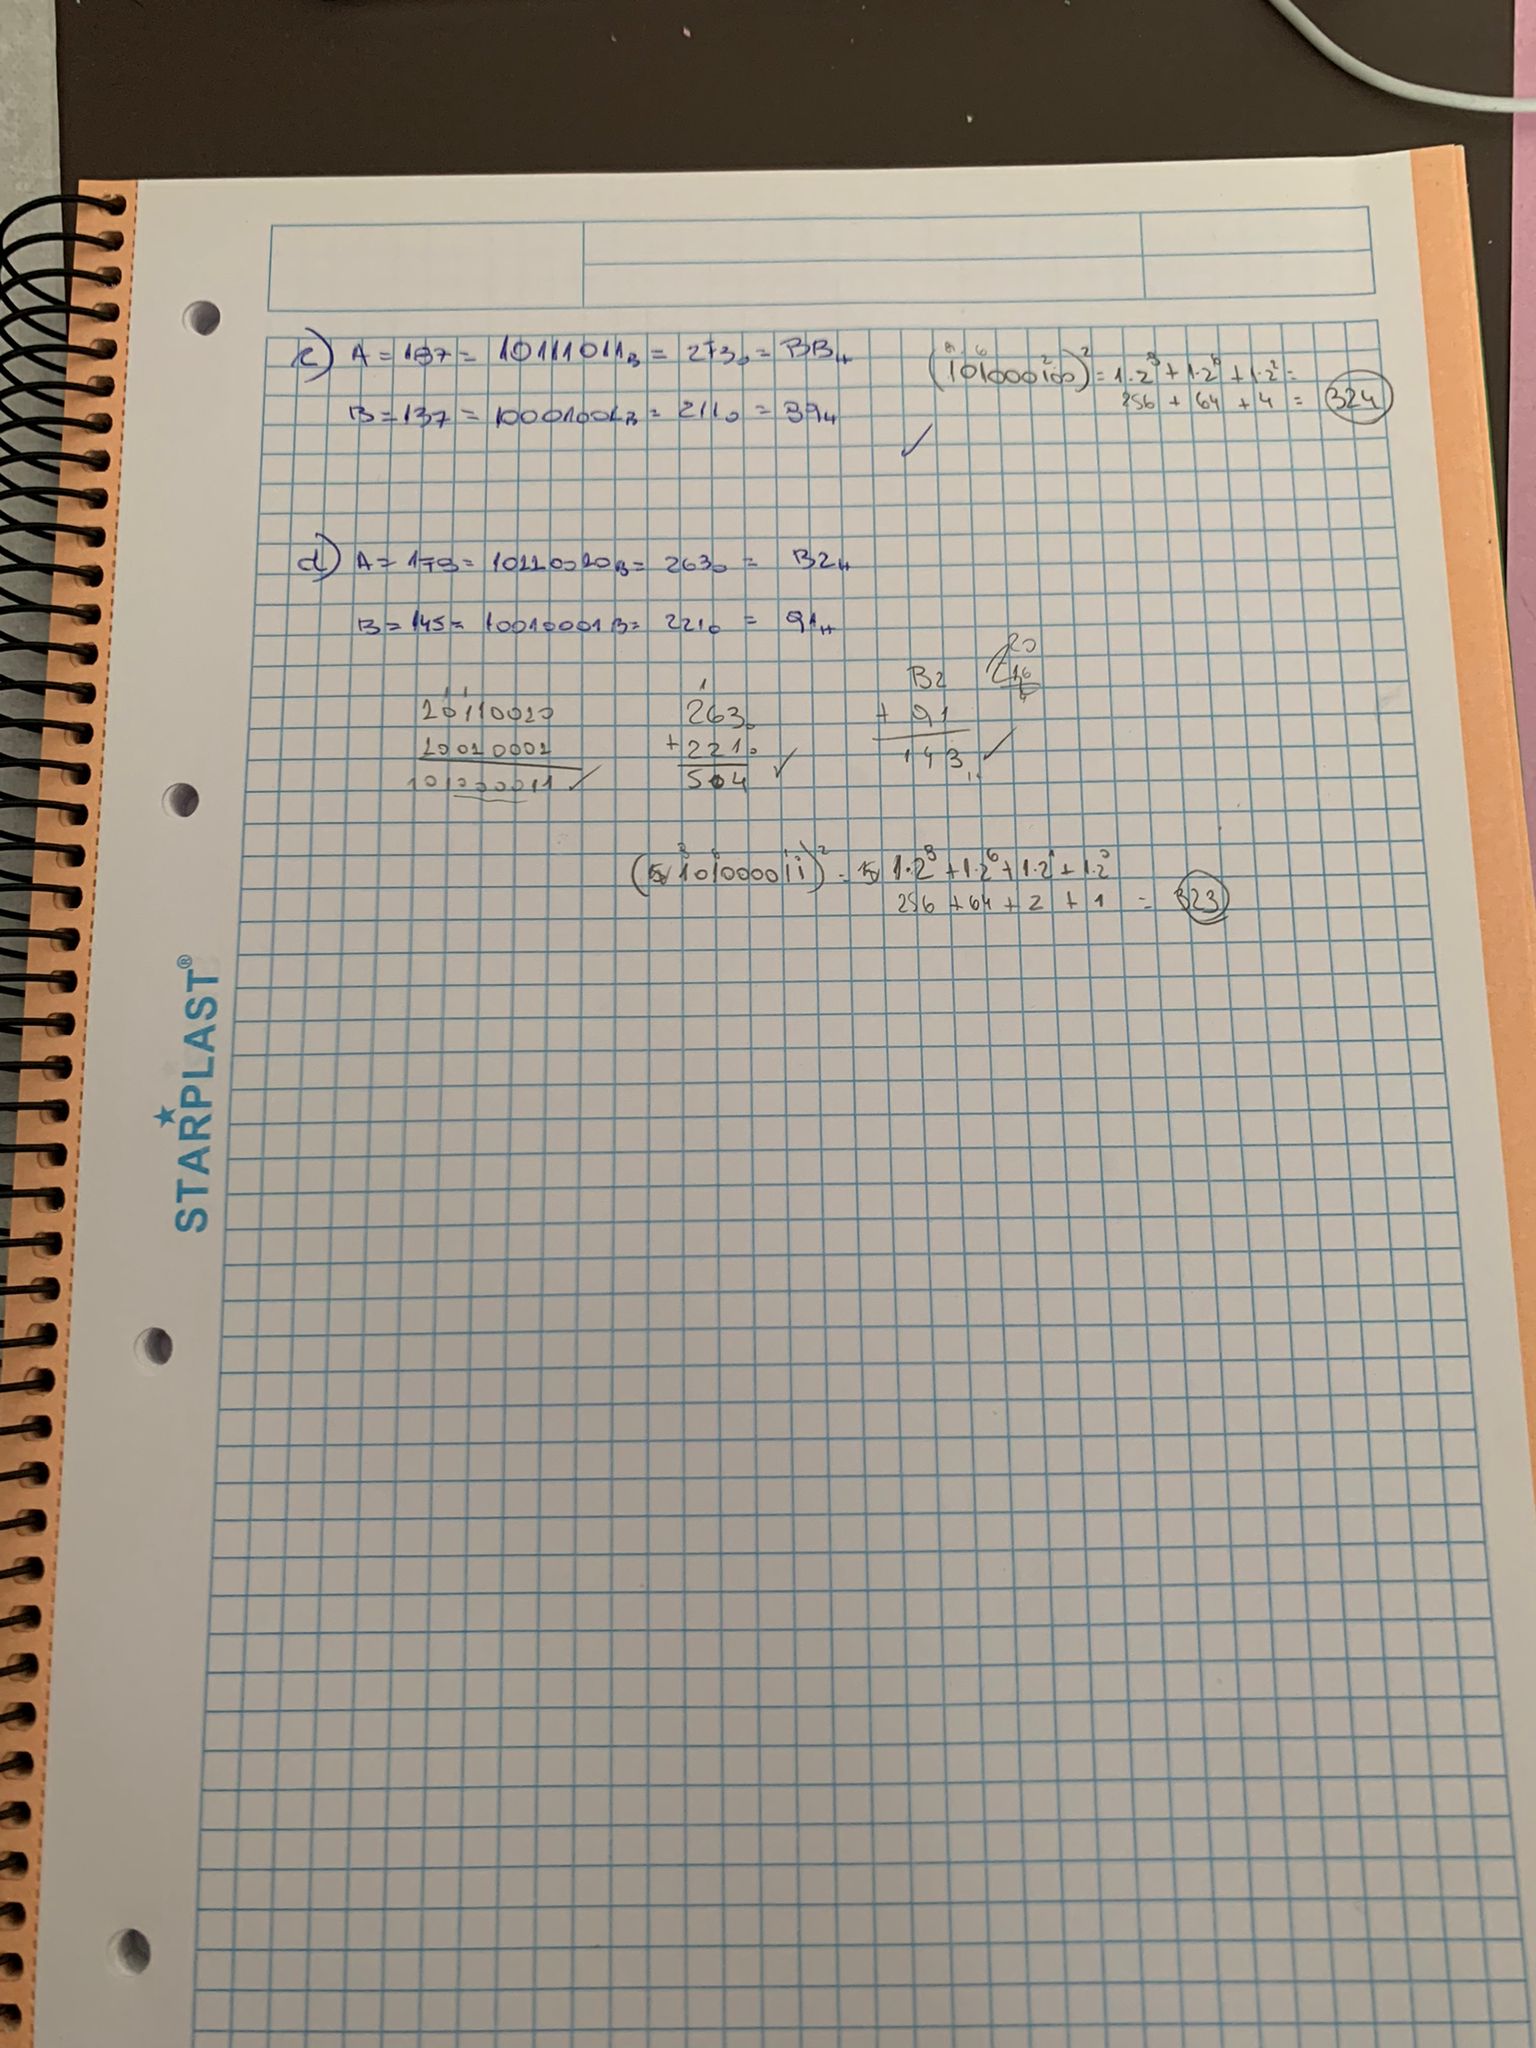 c) A = 187 = 10111011B = 273O = BBH
B = 137 = 10001001B = 211O = 89H
(101000100)² = 1·2⁸ + 1·2⁶ + 1·2² =
256 + 64 + 4 = 324
d) A = 178 = 10110010B = 263O = B2H
B = 145 = 10010001B = 221O = 91H
1 1
10110010
10010001
101000011
1
263O
+ 221O
504
B2
+ 91
143
20
16
4
(101000011)² = 1·2⁸ + 1·2⁶ + 1·2¹ + 1·2⁰
256 + 64 + 2 + 1 = 323
STARPLAST®